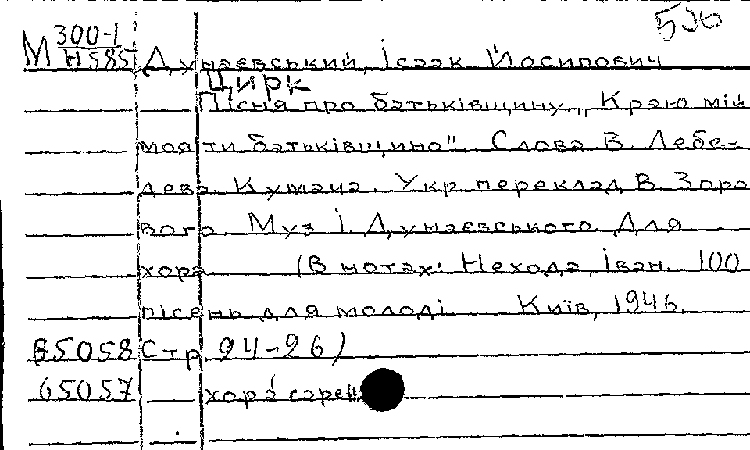 526
М 300-1
Н585 Дунаєвський, Ісаак Йосипович
Цирк
Пісня про батьківщину „Краю мій
моя ти батьківщино". Слова В. Лебе-
дева Кумача. Укр переклад В. Зоро
вого. Муз І. Дунаєвського. Для
хора (В нотах: Нехода Іван. 100
пісень для молоді Київ, 1946
85058 Стр. 94-96)
65057 хора